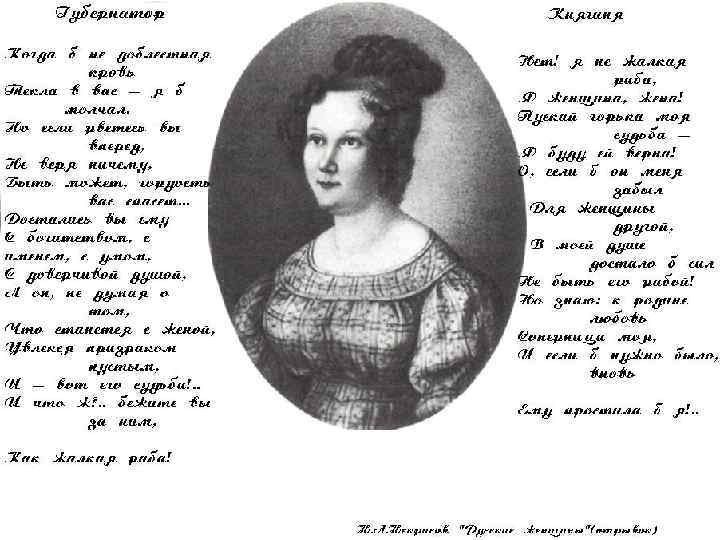 Губернатор
Когда б не доблестная
кровь
Текла в вас — я б
молчал.
Но если рветесь вы
вперед,
Не веря ничему,
Быть может, гордость
вас спасет...
Достались вы ему
С богатством, с
именем, с умом,
С доверчивой душой,
А он, не думая о
том,
Что станется с женой,
Увлекся призраком
пустым,
И — вот его судьба!..
И что ж?.. бежите вы
за ним,
Как жалкая раба!
Княгиня
Нет! я не жалкая
раба,
Я женщина, жена!
Пускай горька моя
судьба —
Я буду ей верна!
О, если б он меня
забыл
Для женщины
другой,
В моей душе
достало б сил
Не быть его рабой!
Но знаю: к родине
любовь
Соперница моя,
И если б нужно было,
вновь
Ему простила б я!..
Н.А.Некрасов "Русские женщины"(отрывок)